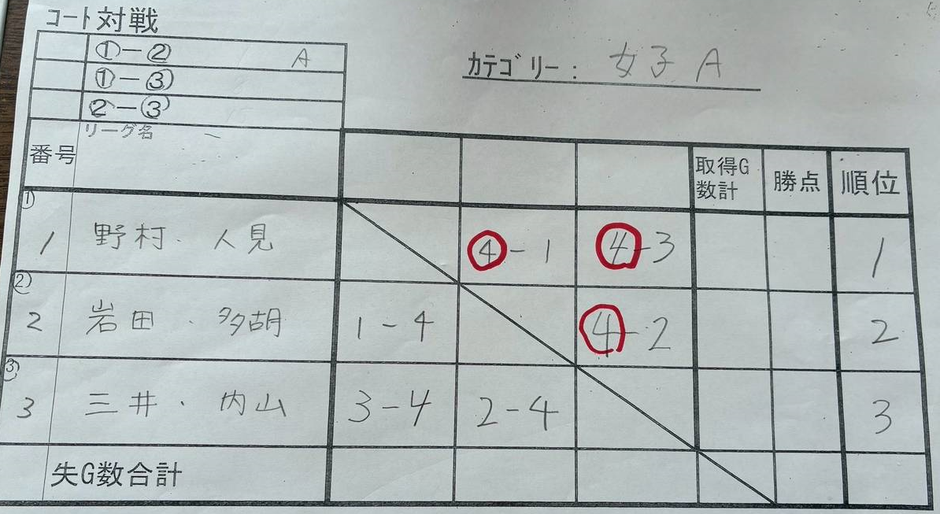 コート対戦
①-② A
①-③
②-③
カテゴリー: 女子 A
リーグ名
番号 取得G数計 勝点 順位
① 1 野村・人見 ④-1 ④-3 1
② 2 岩田・多胡 1-4 ④-2 2
③ 3 三井・内山 3-4 2-4 3
失G数合計